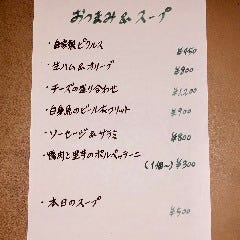 おつまみ&スープ
・自家製ピクルス ¥450
・生ハム&オリーブ ¥900
・チーズの盛り合わせ ¥1,200
・白身魚のビール衣フリット ¥900
・ソーセージ&サラミ ¥800
・鴨肉と里芋のポルペッティーニ
(1個〜) ¥300
・本日のスープ ¥500